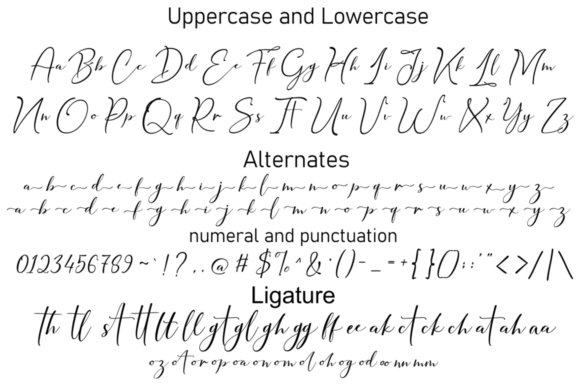 Uppercase and Lowercase
Aa Bb Cc Dd Ee Ff Gg Hh Ii Jj Kk Ll Mm
Nn Oo Pp Qq Rr Ss Tt Uu Vv Ww Xx Yy Zz
Alternates
a b c d e f g h i j k l m n o p q r s u w x y z
a b c d e f g h i j k l m n o p q r s u w x y z
numeral and punctuation
0123456789~`!?..@#$%^&*()-_=+{}[]:;'"<>/|\
Ligature
th tl st tt lt ll gt gl gh gg ff ee ak ct ck ch at ah aa
oz ot or op oa on om ol oh og od oo nn mm